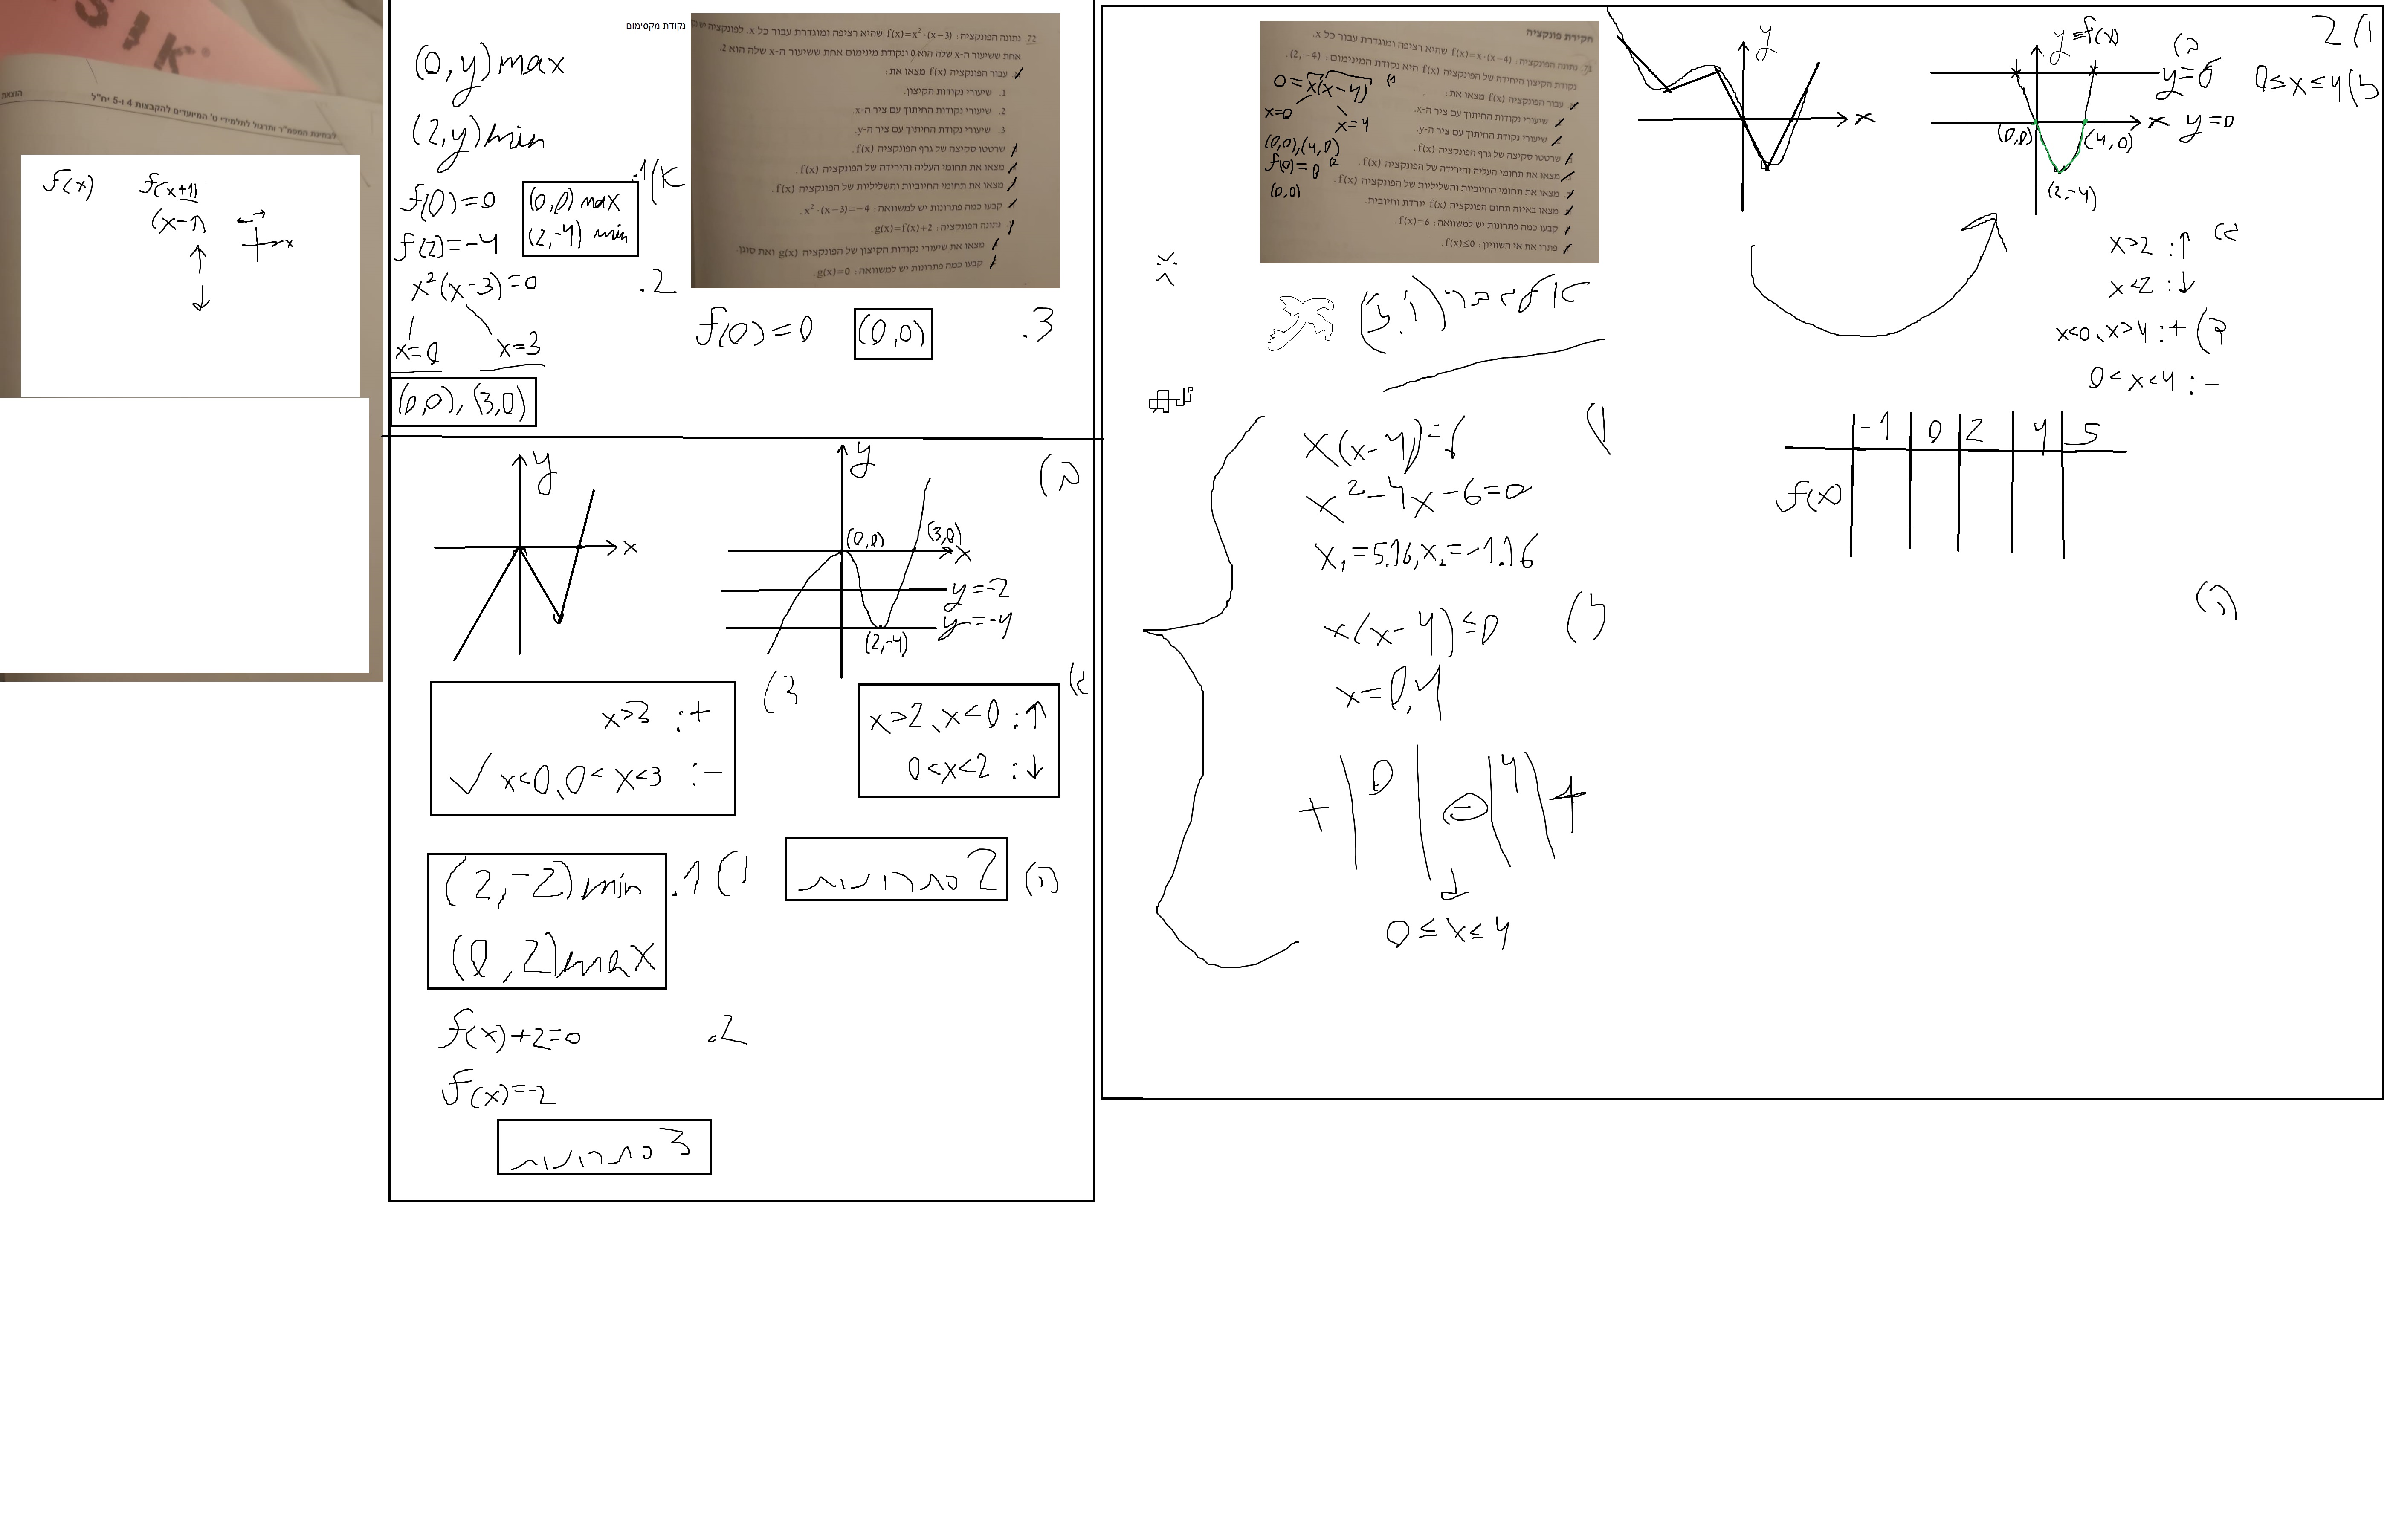 SIK
לבחינת המפמ"ר ותרגול לתלמידי ט' המיועדים להקבצות 4 ו-5 יח"ל
הוצאת
f(x) f(x+1)
(x-1)
x
נקודת מקסימום
72. נתונה הפונקציה: f(x)=x²·(x−3) שהיא רציפה ומוגדרת עבור כל x. לפונקציה יש
אחת ששיעור ה-x שלה הוא 0 ונקודת מינימום אחת ששיעור ה-x שלה הוא 2.
א. עבור הפונקציה f(x) מצאו את:
1. שיעורי נקודות הקיצון.
2. שיעורי נקודות החיתוך עם ציר ה-x.
3. שיעורי נקודת החיתוך עם ציר ה-y.
שרטטו סקיצה של גרף הפונקציה f(x).
מצאו את תחומי העליה והירידה של הפונקציה f(x).
מצאו את תחומי החיוביות והשליליות של הפונקציה f(x).
קבעו כמה פתרונות יש למשוואה: x²·(x−3)=−4.
נתונה הפונקציה: g(x)=f(x)+2.
מצאו את שיעורי נקודות הקיצון של הפונקציה g(x) ואת סוגן.
קבעו כמה פתרונות יש למשוואה: g(x)=0.
(0,y) max
(2,y) min
א) 1.
f(0)=0
f(2)=-4
(0,0) max
(2,-4) min
2.
x²(x-3)=0
x=0 x=3
(0,0), (3,0)
3.
f(0)=0 (0,0)
ב)
y
x
y
(0,0) (3,0)
x
y=-2
y=-4
(2,-4)
x>2, x<0 :↑
0<x<2 :↓
x>3 :+
✓ x<0, 0<x<3 :-
ה)
2 פתרונות
ו) 1.
(2,-2) min
(0,2) max
2.
f(x)+2=0
f(x)=-2
3 פתרונות
חקירת פונקציה
71. נתונה הפונקציה: f(x)=x·(x−4) שהיא רציפה ומוגדרת עבור כל x.
נקודת הקיצון היחידה של הפונקציה f(x) היא נקודת המינימום: (2,−4).
עבור הפונקציה f(x) מצאו את:
שיעורי נקודות החיתוך עם ציר ה-x.
שיעורי נקודת החיתוך עם ציר ה-y.
שרטטו סקיצה של גרף הפונקציה f(x).
מצאו את תחומי העליה והירידה של הפונקציה f(x).
מצאו את תחומי החיוביות והשליליות של הפונקציה f(x).
מצאו באיזה תחום הפונקציה f(x) יורדת וחיובית.
קבעו כמה פתרונות יש למשוואה: f(x)=6.
פתרו את אי השוויון: f(x)≤0.
0=x(x-4)
x=0
x=4
(0,0),(4,0)
f(0)=0
(0,0)
y
x
ב)
y=f(x)
y=6
x y=0
(0,0) (4,0)
(2,-4)
ו) 2
ז) 0≤x≤4
x>2 :↑
x<2 :↓
x<0, x>4 :+
0<x<4 :-
-1 0 2 4 5
f(x)
ה)
אלגברי (ו,ז)
ו)
x(x-4)=6
x²-4x-6=0
x₁=5.16, x₂=-1.16
ז)
x(x-4)≤0
x=0,4
+ 0 - 4 +
0≤x≤4